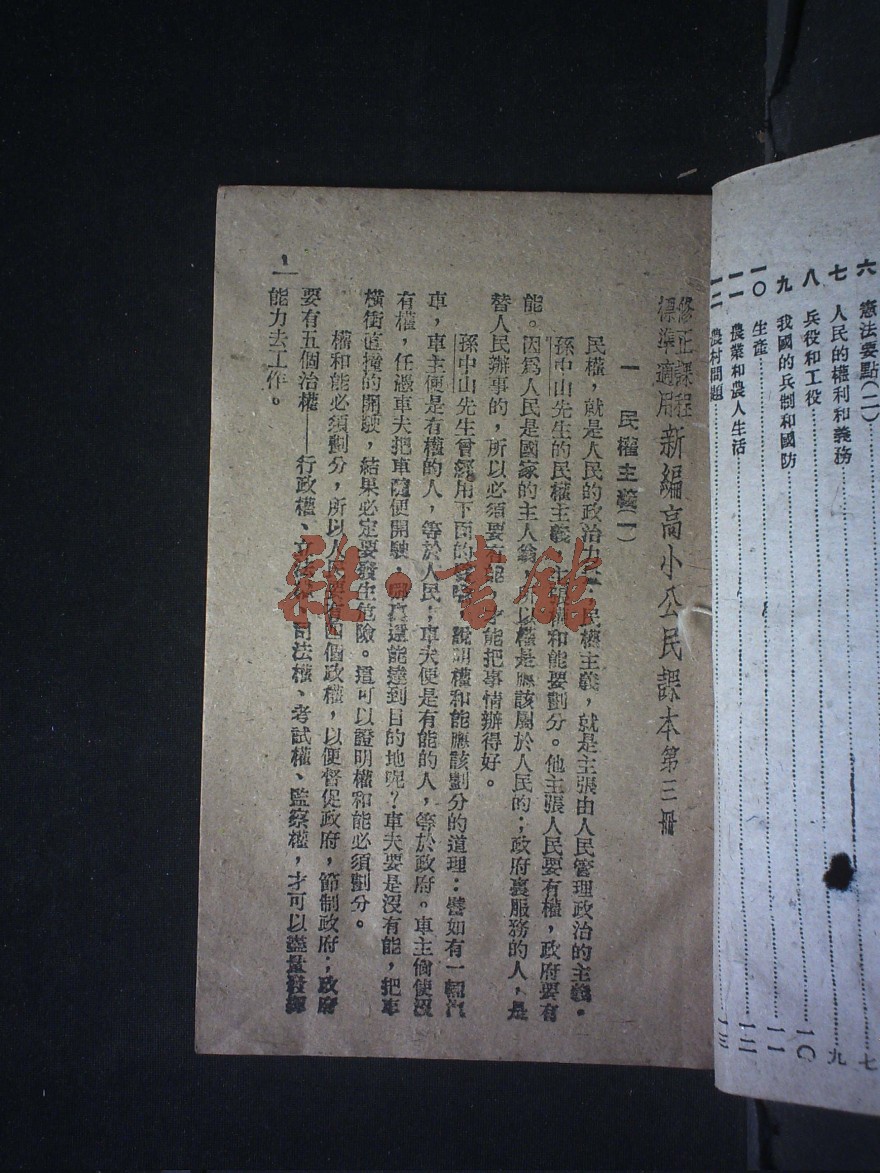 六　憲法要點(二)……七
七　人民的權利和義務……九
八　兵役和工役……一〇
九　我國的兵制和國防……一一
一〇　生產……一二
一一　農業和農人生活……一三
一二　農村問題
修正課程標準適用 新編高小公民課本第三冊
一　民權主義(一)
民權，就是人民的政治力　民權主義，就是主張由人民管理政治的主義。
孫中山先生的民權主義，主張權和能要劃分。他主張人民要有權，政府要有
能。因爲人民是國家的主人翁，所以權是應該屬於人民的；政府裏服務的人，是
替人民辦事的，所以必須要有能，才能把事情辦得好。
孫中山先生曾經用下面的　說明權和能應該劃分的道理：譬如有一輛汽
車，車主便是有權的人，等於人民；車夫便是有能的人，等於政府。車主倘使沒
有權，任憑車夫把車隨便開駛，　還能達到目的地呢？車夫要是沒有能，把車
橫衝直撞的開駛，結果必定要發生危險。這可以證明權和能必須劃分。
權和能必須劃分，所以人民要有四個政權，以便督促政府，節制政府；政府
要有五個治權——行政權、立法權、司法權、考試權、監察權，才可以盡量發揮
能力去工作。
一
社·書館